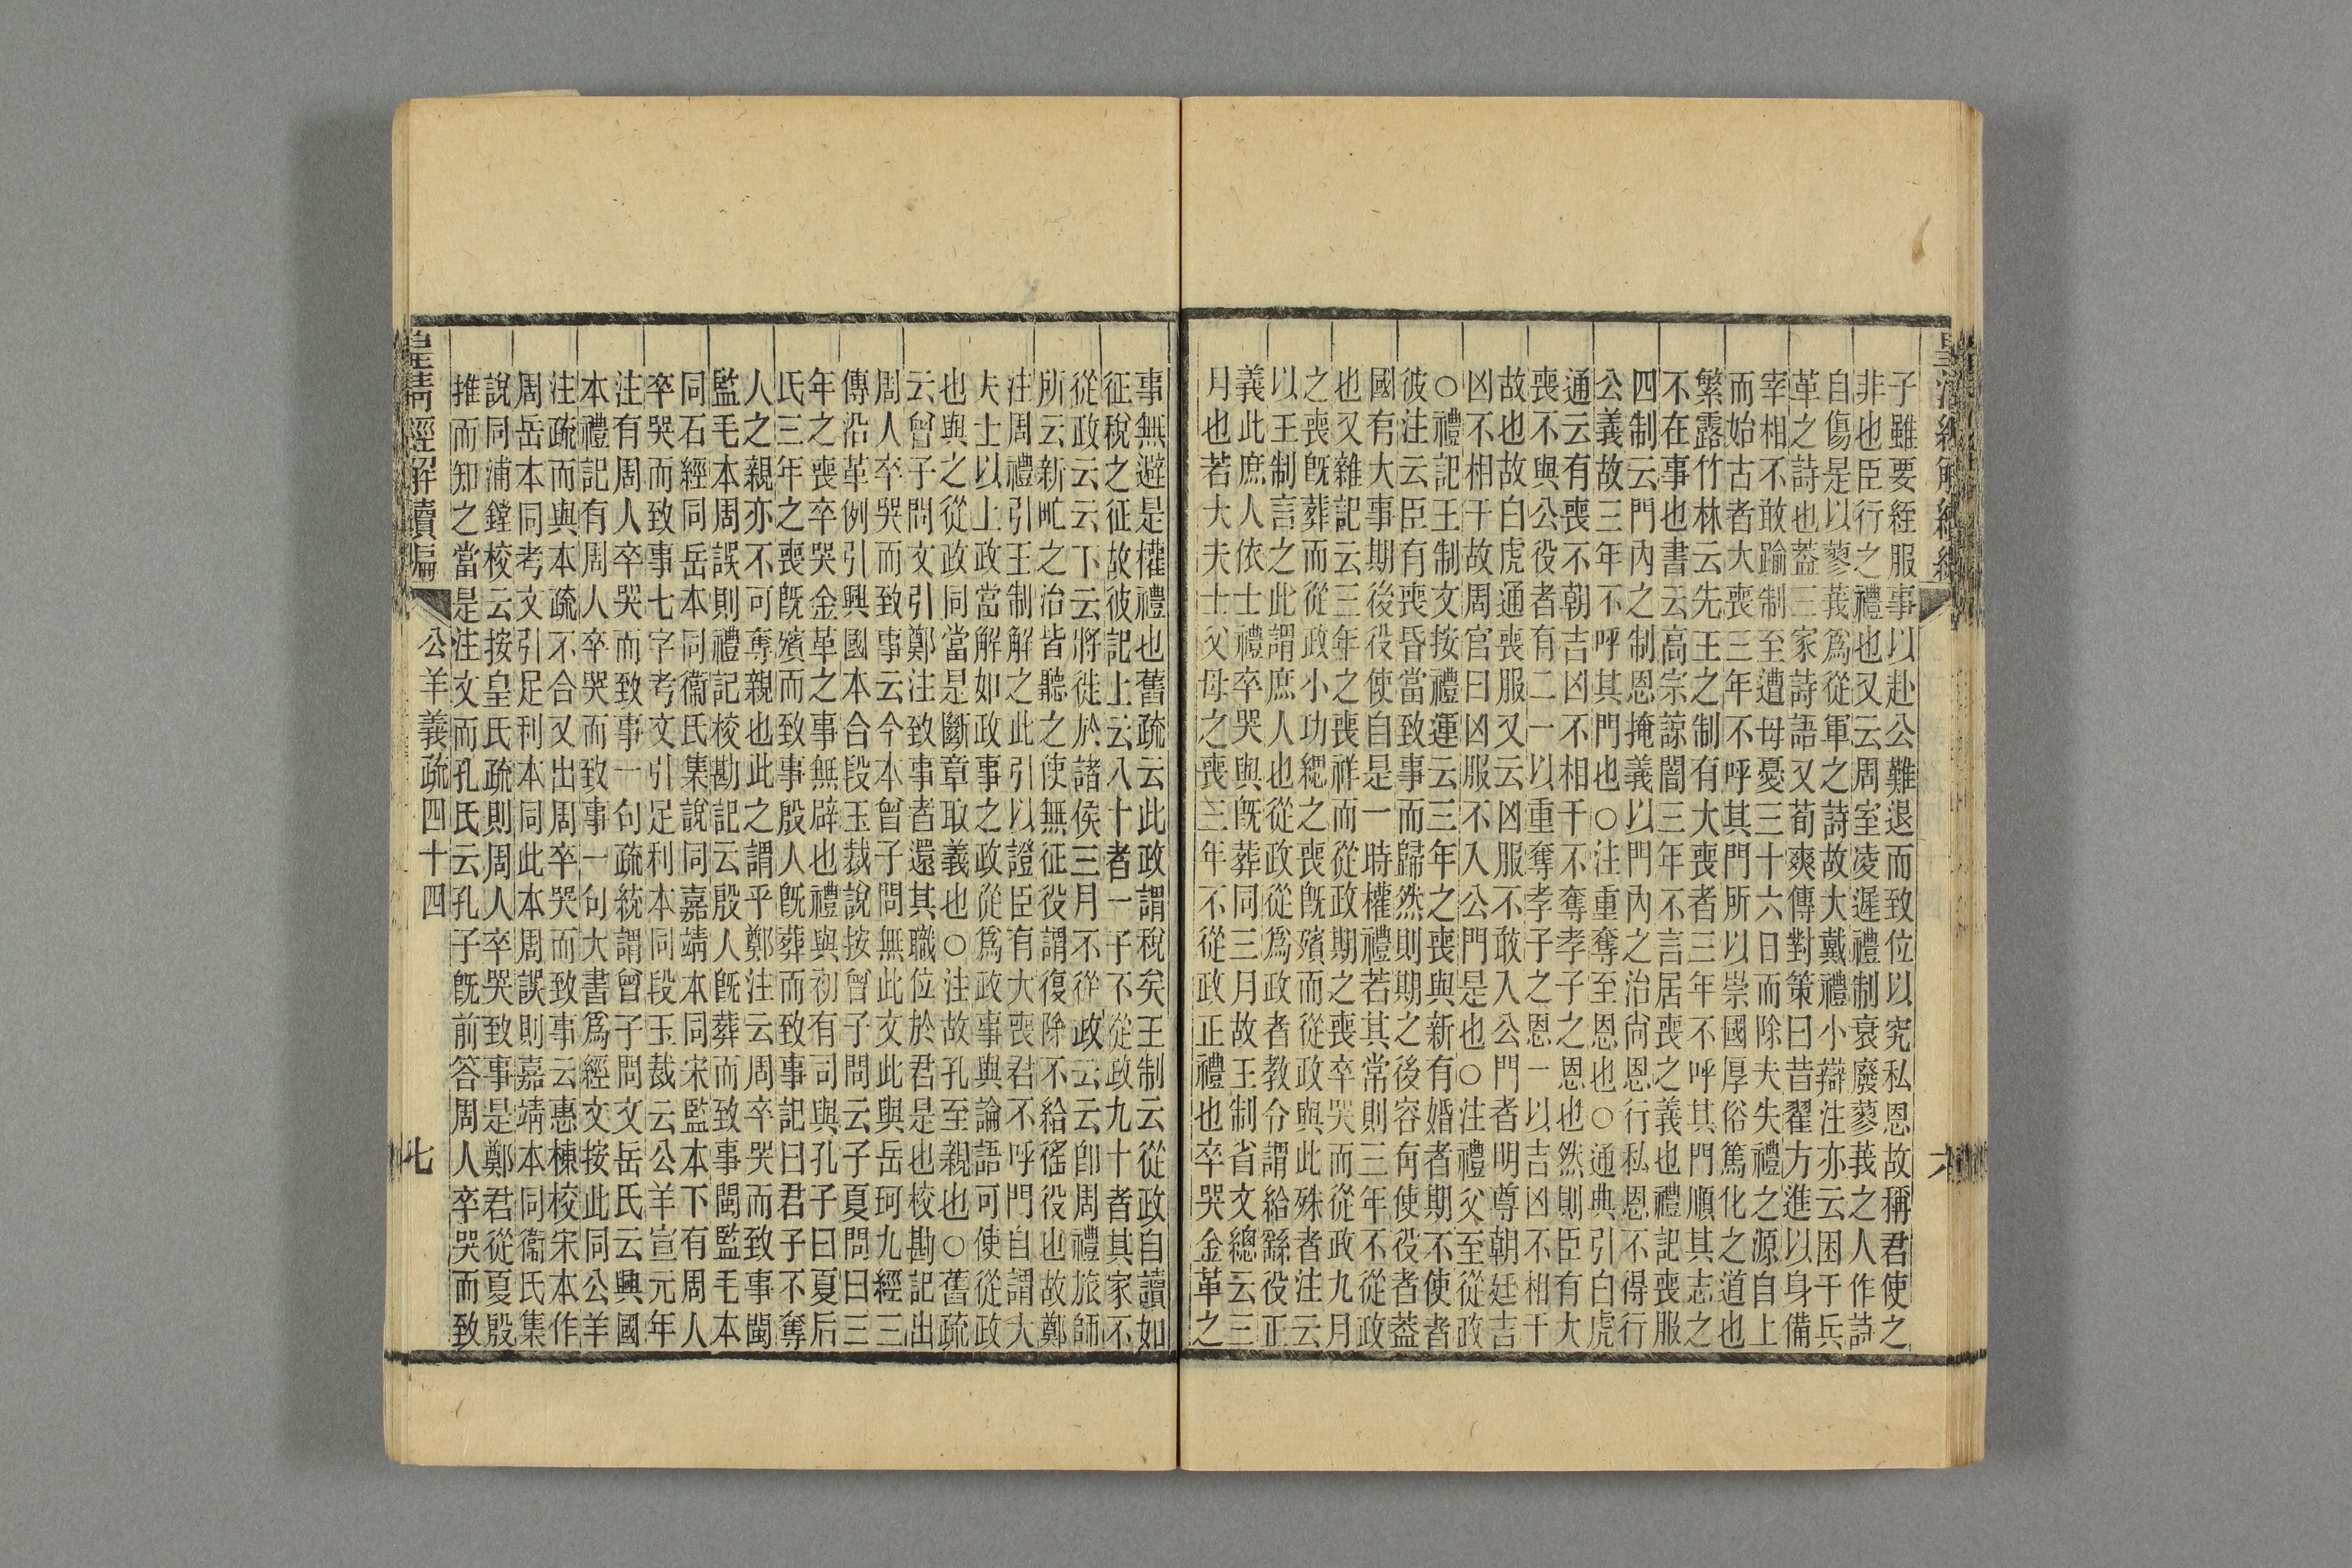 子雖要絰服事以赴公難退而致位以究私恩故稱君使之
非也臣行之禮也又云周室凌遲禮制衰廢蓼莪之人作詩
自傷是以蓼莪爲從軍之詩故大戴禮小辯注亦云困于兵
革之詩也葢三家詩語又荀爽傳對策曰昔翟方進以身備
宰相不敢踰制至遭母憂三十六日而除夫失禮之源自上
而始古者大喪三年不呼其門所以崇國厚俗篤化之道也
繁露竹林云先王之制有大喪者三年不呼其門順其志之
不在事也書云高宗諒闇三年不言居喪之義也禮記喪服
四制云門內之制恩掩義以門內之治尙恩行私恩不得行
公義故三年不呼其門也○注重奪至恩也○通典引白虎
通云有喪不朝吉凶不相干不奪孝子之恩也然則臣有大
喪不與公役者有二一以重奪孝子之恩一以吉凶不相干
故也故白虎通喪服又云凶服不敢入公門者明尊朝廷吉
凶不相干故周官曰凶服不入公門是也○注禮父至從政
○禮記王制文按禮運云三年之喪與新有婚者期不使者
彼注云臣有喪昏當致事而歸然則期之後容有使役者葢
國有大事期後役使自是一時權禮若其常則三年不從政
也又雜記云三年之喪祥而從政期之喪卒哭而從政九月
之喪旣葬而從政小功緦之喪旣殯而從政與此殊者注云
以王制言之此謂庶人也從政從爲政者教令謂給繇役正
義此庶人依士禮卒哭與旣葬同三月故王制省文總云三
月也若大夫士父母之喪三年不從政正禮也卒哭金革之
事無避是權禮也舊疏云此政謂稅矣王制云從政自讀如
征稅之征故彼記上云八十者一子不從政九十者其家不
從政云云下云將徙於諸侯三月不從政云云卽周禮旅師
所云新甿之治皆聽之使無征役謂復除不給徭役也故鄭
注周禮引王制解之此引以證臣有大喪君不呼門自謂大
夫士以上政當解如政事之政從爲政事與論語可使從政
也與之從政同當是斷章取義也○注故孔至親也○舊疏
云曾子問文引鄭注致事者還其職位於君是也校勘記出
周人卒哭而致事云今本曾子問無此文此與岳珂九經三
傳沿革例引興國本合段玉裁說按曾子問云子夏問曰三
年之喪卒哭金革之事無辟也禮與初有司與孔子曰夏后
氏三年之喪旣殯而致事殷人旣葬而致事記曰君子不奪
人之親亦不可奪親也此之謂乎鄭注云周卒哭而致事閩
監毛本周誤則禮記校勘記云殷人旣葬而致事閩監毛本
同石經同岳本同衞氏集說同嘉靖本同宋監本下有周人
卒哭而致事七字考文引足利本同段玉裁云公羊宣元年
注有周人卒哭而致事一句疏統謂曾子問文岳氏云興國
本禮記有周人卒哭而致事一句大書爲經文按此同公羊
注疏而與本疏不合又出周卒哭而致事云惠棟校宋本作
周岳本同考文引足利本同此本周誤則嘉靖本同衞氏集
說同浦鏜校云按皇氏疏則周人卒哭致事是鄭君從夏殷
推而知之當是注文而孔氏云孔子旣前答周人卒哭而致
皇清經解續編 公羊義疏四十四 七